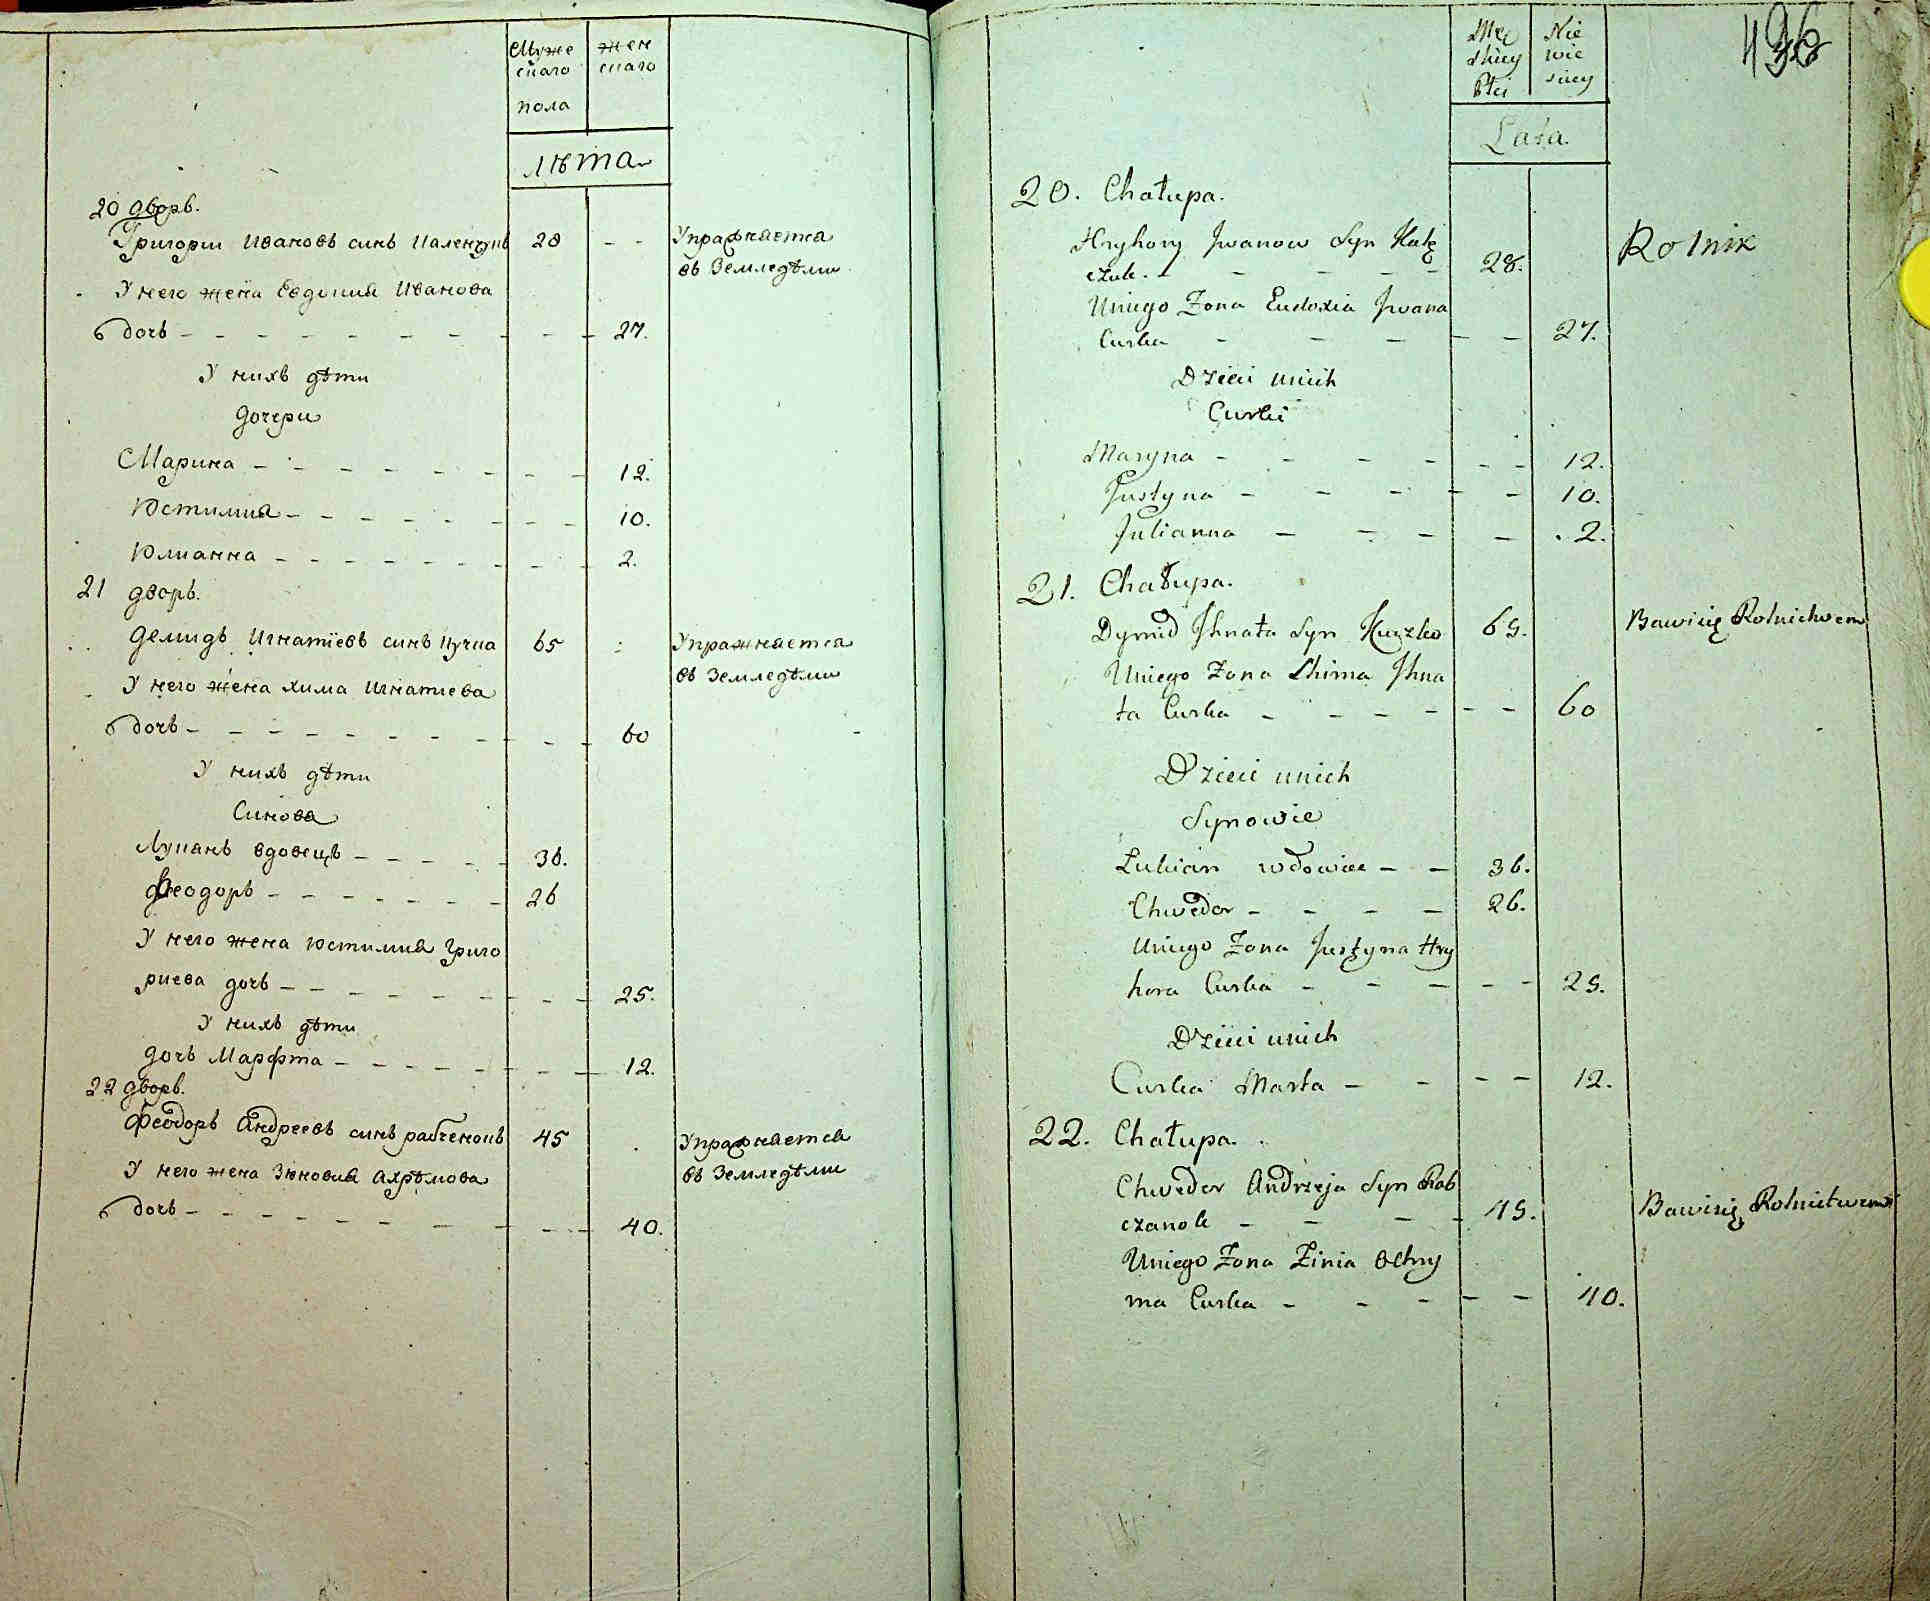 Муже
скаго
пола
жен
скаго
лѣта
20 дворъ.
Григории Ивановъ синъ 28 - - Упражняется
въ Земледѣлии
У него жена Евдокия Иванова
дочь - - - - - - - - - - 27.
У нихъ дѣти
дочери
Марина - - - - - - - - 12.
Юстимия - - - - - - - - 10.
Юлианна - - - - - - - - 2.
21 дворъ.
Демидъ Игнатіевъ синъ Кучка 65 : Упражняется
въ Земледѣлии
У него жена Хима Игнатиева
дочь - - - - - - - - - - 60
У нихъ дѣти
Синова
Луканъ вдовецъ - - - - - 36.
Феодоръ - - - - - - - 26
У него жена Юстимия Григо
риева дочь - - - - - - - - 25.
У нихъ дѣти
дочь Марфта - - - - - - - 12.
22 дворъ.
Феодоръ Андреевъ синъ рабченокъ 45 . Упражняется
въ Земледѣлии
У него жена Зѣновия Ахрѣмова
дочь - - - - - - - - - - 40.
Mę
skiey
Płci
Nie
wie
sciey
Lata.
20. Chałupa.
Hryhory Jwanow Syn Kalę
czuk. - - - - - 28. Rolnik
Uniego Zona Eudoxia Jwana
Curka - - - - - 27.
Dzieci unich
Curki
Maryna - - - - - - 12.
Justyna - - - - - 10.
Julianna - - - - . 2.
21. Chałupa.
Dymid Jhnata Syn Kuczko 65. Bawisię Rolnictwem
Uniego Zona Chima Jhna
ta Curka - - - - - - - 60
Dzieci unich
Synowie
Lukian wdowiec - - 36.
Chwedor - - - - 26.
Uniego Zona Justyna Hry
hora Curka - - - - - 25.
Dzieci unich
Curka Marta - - - - 12.
22. Chałupa.
Chwedor Andrzeja Syn Rab
czanok - - - - 45. Bawisię Rolnictwem
Uniego Zona Zinia Ochry
ma Curka - - - - - 40.